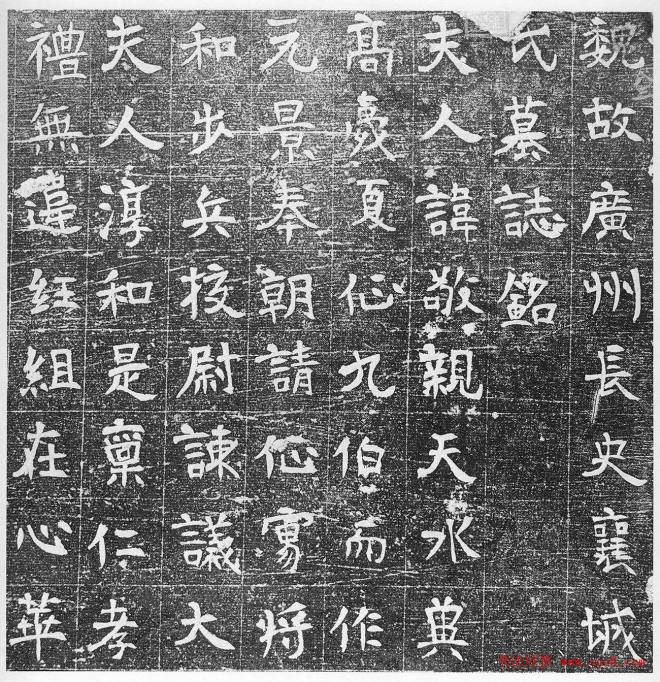 魏故廣州長史襄城
氏墓誌銘
夫人諱敬親天水典
髙夏九伯而作
元景奉朝請將
和步兵校尉諫議大
夫人淳和是稟仁孝
禮無違紝組在心華